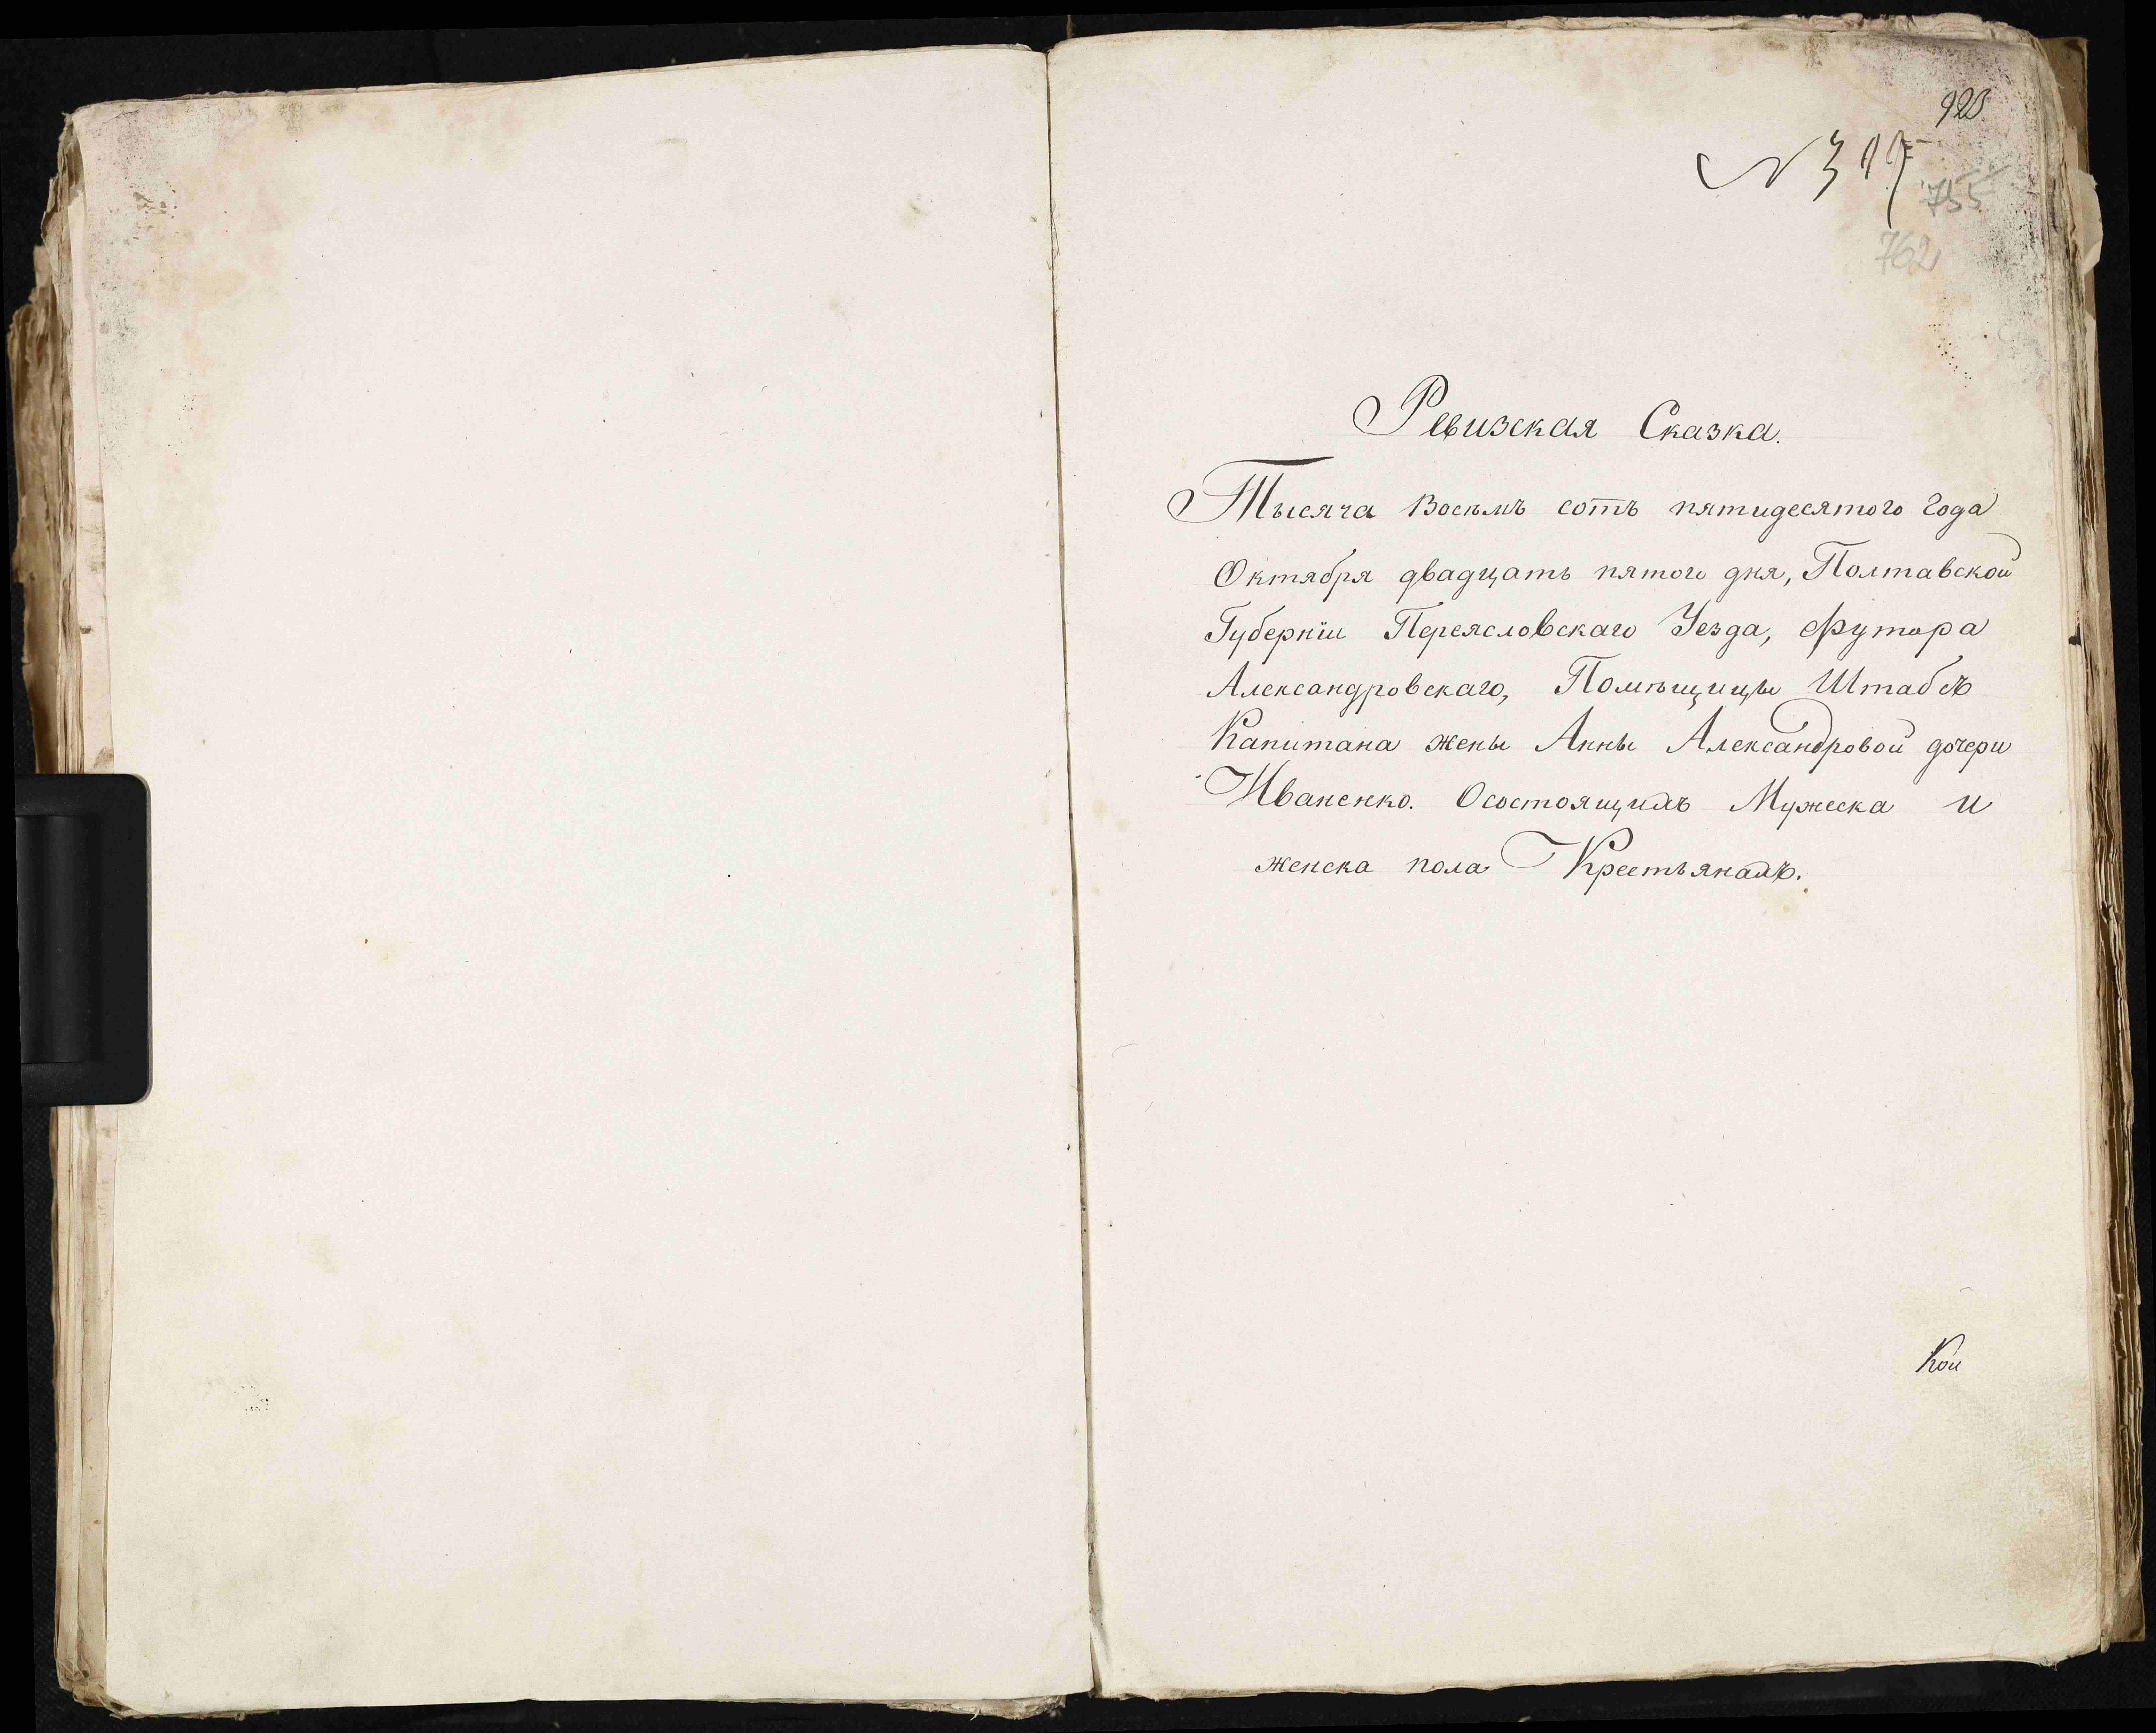 923
755
762
Ревизская Сказка.
Тысяча Восемъ сотъ пятидесятого года
Октября двадцать пятого дня, Полтавской
Губернїи Переясловскаго Уезда, Футора
Александровскаго, Помѣщицы Штабсъ
Капитана жены Анны Александровой дочери
Иваненко. Осостоящихъ Мужеска и
женска пола Крестьянахъ.
Кои